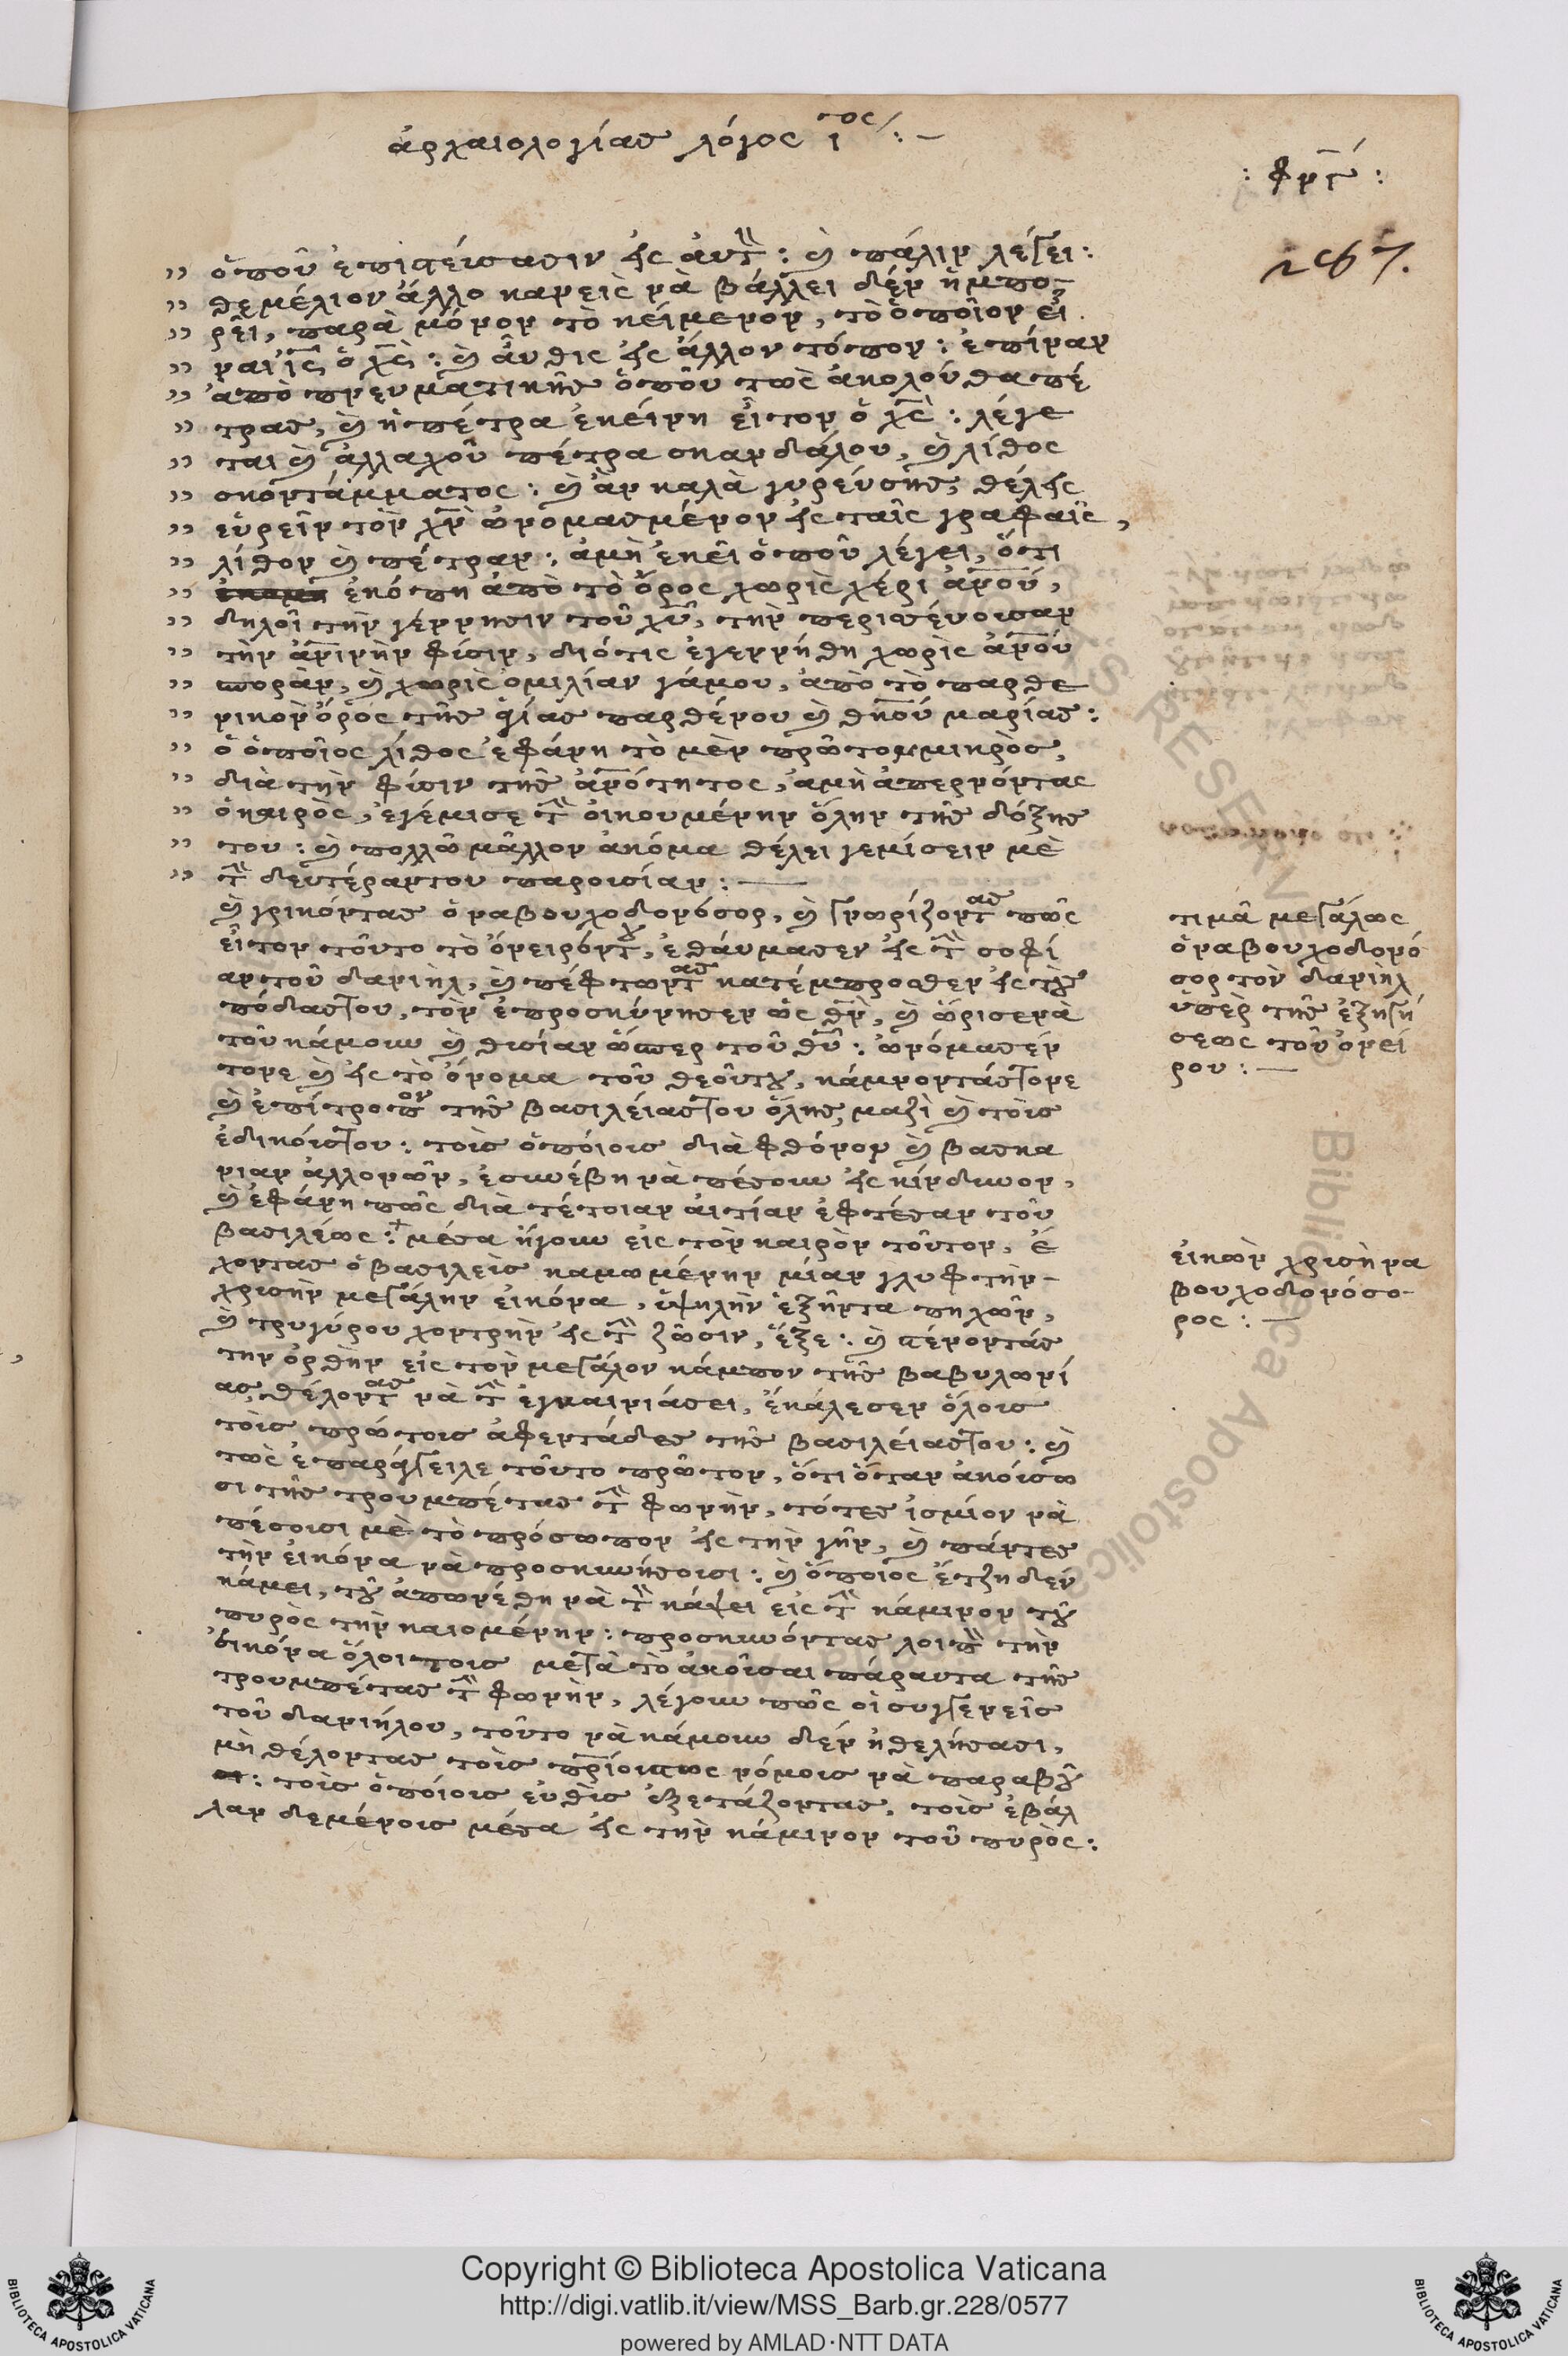 ἀρχαιολογίας λόγος ι τος :-
: φρπ :
287.
ὁποῦ ἐπιστεύσασιν εἰς αὐτὸν : καὶ πάλιν λέγει :
θεμέλιον ἄλλο κανεὶς νὰ βάλλει δὲν ἠμπο-
ρεῖ, παρὰ μόνον τὸ κείμενόν, τὸ ὁποῖον εἶ
ναι ις ὁ χς : καὶ αὖθις εἰς ἄλλον τόπον : ἐπίναν
ἀπὸ πνευματικῆς ὁποῦ τὼς ἀκολούθα πέ
τρας, καὶ ἡ πέτρα ἐκείνη εἶτον ὁ χς : λέγε
ται καὶ ἀλλαχοῦ πέτρα σκανδάλου, καὶ λίθος
σκοντάμματος : καὶ ἂν καλὰ γυρεύσῃς, θέλεις
εὑρεῖν τὸν χν ὠνομασμένον εἰς ταῖς γραφαῖς,
λίθον καὶ πέτραν : ἀμὴ ἐκεῖ ὁποῦ λέγει, ὅτι
ἐκόπη ἀπὸ τὸ ὄρος χωρὶς χέρι ἀνοῦ,
δηλοῖ τὴν γέννησιν τοῦ χυ, τὴν περισεύουσαν
τὴν ἀνινὴν φύσιν, διότις ἐγεννήθη χωρὶς ἀνοῦ
σπορὰν, καὶ χωρὶς ὁμιλίαν γάμου, ἀπὸ τὸ παρθε
νικὸν ὄρος τῆς ἁγίας παρθένου καὶ θηκοῦ μαρίας :
ὁ ὁποῖος λίθος ἐφάνη τὸ μὲν πρῶτον μικρὸς,
διὰ τὴν φύσιν τῆς ἀνότητος, ἀμὴ ἀπερνόντας
ὁ καιρὸς, ἐγέμισε τὴν οἰκουμένην ὅλην τῆς δόξης
του : καὶ πολλῶ μᾶλλον ἀκόμα θέλει γεμίσειν μὲ
τὴν δευτέραν του παρουσίαν : —
καὶ γρικόντας ὁ ναβουχοδονόσορ, καὶ γνωρίζοντας πῶς
εἶτον τοῦτο τὸ ὄνειρόν του, ἐθαύμασεν εἰς τὴν σοφί
αν τοῦ δανιὴλ, καὶ πέφτωντας κατέμπροσθεν εἰς τοὺς
πόδας του, τὸν ἐπροσκύνησεν ὡς θν, καὶ ὥρισε νὰ
τοῦ κάμουν καὶ θυσίαν ὥσπερ τοῦ θυ : ὠνόμασέν
τονε καὶ εἰς τὸ ὄνομα τοῦ θεοῦ του, κάμνοντάς τονε
καὶ ἐπίτροπον τῆς βασιλείας του ὅλης, μαζὶ καὶ τοῖς
ἐδικοίς του : τοὶς ὁποίοις διὰ φθόνον καὶ βασκα
νίαν ἀλλονῶν, ἐσυνέβη νὰ πέσουν εἰς κίνδυνον,
καὶ ἐφάνη πῶς διὰ τέτοιαν αἰτίαν ἐφτέσαν τοῦ
βασιλέως : μέσα ἤγουν εἰς τὸν καιρὸν τοῦτον, ἔ
χοντας ὁ βασιλεὺς καμωμένην μίαν γλυφτὴν -
χρυσὴν μεγάλην εἰκόνα, ὑψηλὴν ἑξῆντα πηχῶν,
καὶ τρυγύρου χοντρὴν εἰς τὴν ζῶσιν, ἕξε : καὶ στένοντάς
την ὀρθὴν εἰς τὸν μεγάλον κάμπον τῆς βαβυλωνί
ας, θέλοντας νὰ τὴν ἐγκαινιάσει, ἐκάλεσεν ὅλοις
τοὶς πρώτοις ἀφεντάδες τῆς βασιλείας του : καὶ
τὼς ἐπαράγγειλε τοῦτο πρῶτον, ὅτι ὅταν ἀκούσω
σι τῆς τρουμπέτας τὴν φωνὴν, τότες ἰσμίον νὰ
πέσουσι μὲ τὸ πρόσωπον εἰς τὴν γῆν, καὶ πάντες
τὴν εἰκόνα νὰ προσκυνήσουσι : καὶ ὅποιος ἔτζη δὲν
κάμει, τοῦ ἀπωνέθη νὰ τὸν κάψει εἰς τὴν κάμινον τοῦ
πυρὸς τὴν καιομένην : προσκυνόντας λοιπὸν τὴν
εἰκόνα ὅλοι τοις μετὰ τὸ ἀκοῦσαι πάραυτα τῆς
τρουμπέτας τὴν φωνὴν, λέγουν πῶς οἱ συγγενεῖς
τοῦ δανιήλου, τοῦτο νὰ κάμουν δὲν ἠθελήσασι,
μὴ θέλοντας τοὶς πρίους νόμοις νὰ παραβοῦ
σι : τοὶς ὁποίοις εὐθὶς ἐξετάζοντας, τοὶς ἐβάλ
λαν δεμένοις μέσα εἰς τὴν κάμινον τοῦ πυρὸς :
τιμᾶ μεγάλως
ὁ ναβουχοδονό
σορ τὸν δανιὴλ
ὑπὲρ τῆς ἐξηγή
σεως τοῦ ὀνεί
ρου : —
εἰκὼν χρυσὴ να
βουχοδονόσο-
ρος : —
Copyright © Biblioteca Apostolica Vaticana
http://digi.vatlib.it/view/MSS_Barb.gr.228/0577
powered by AMLAD·NTT DATA
BIBLIOTECA APOSTOLICA VATICANA
BIBLIOTECA APOSTOLICA VATICANA